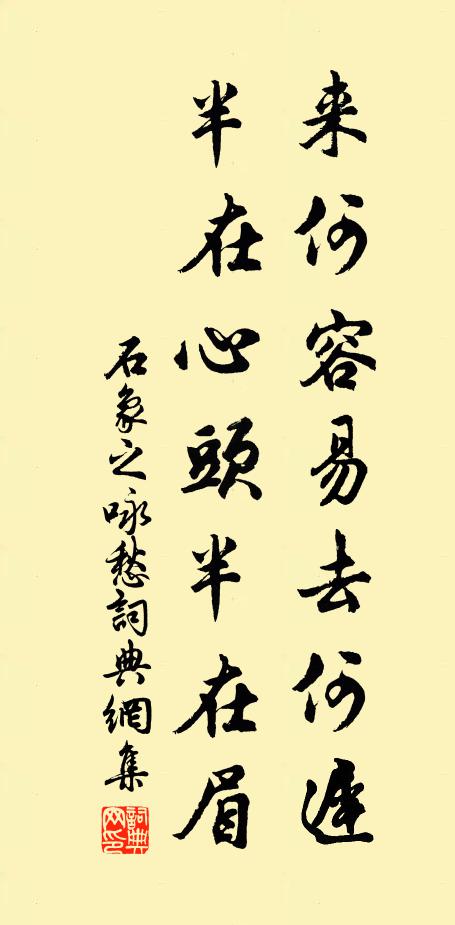 来何容易去何遲
半在心頭半在眉
石象之咏愁詞典網集
詞典网印